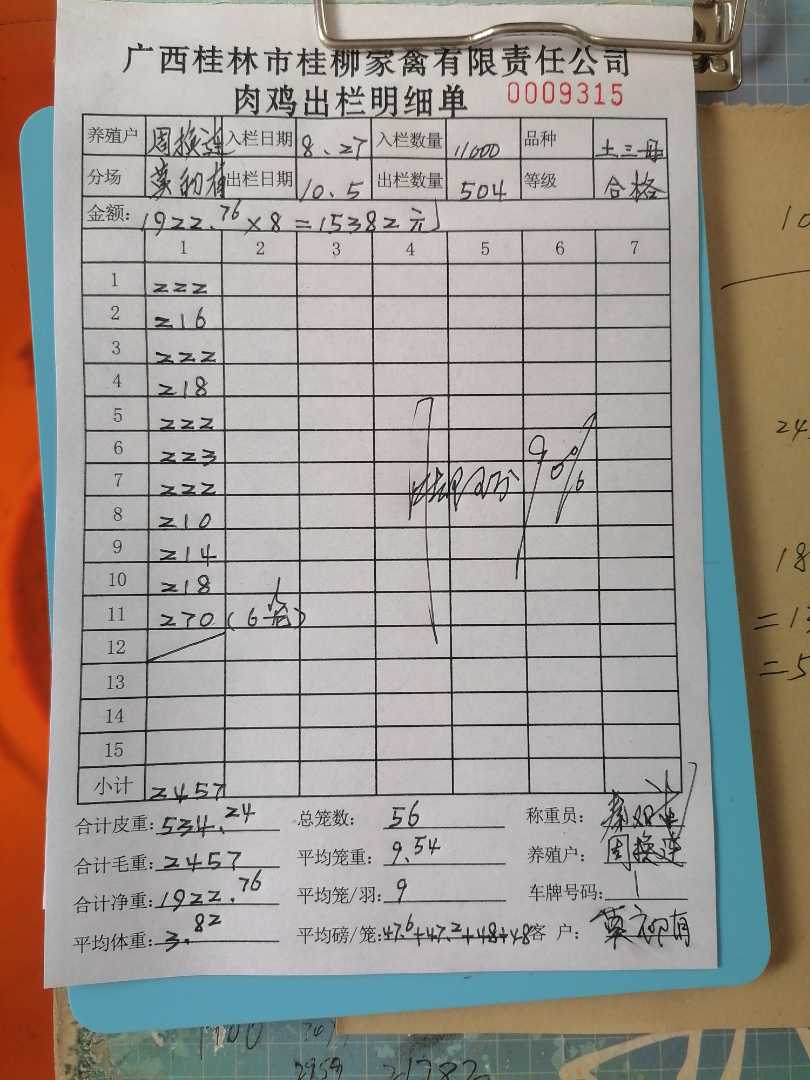 广西桂林市桂柳家禽有限责任公司
肉鸡出栏明细单 0009315
养殖户 周换连 入栏日期 8.27 入栏数量 11000 品种 土三母
分场 出栏日期 10.5 出栏数量 504 等级 合格
金额: 1922.76×8=15382元
1 2 3 4 5 6 7
1 222
2 216
3 222
4 218
5 222
6 223
7 222
8 210
9 214
10 218
11 270 (6笼)
12
13
14
15
小计 2457
合计皮重: 534.24 总笼数: 56 称重员:
合计毛重: 2457 平均笼重: 9.54 养殖户: 周换连
合计净重: 1922.76 平均笼/羽: 9 车牌号码: 1
平均体重: 3.82 平均磅/笼: 47.6+47.2+48+48 客 户: